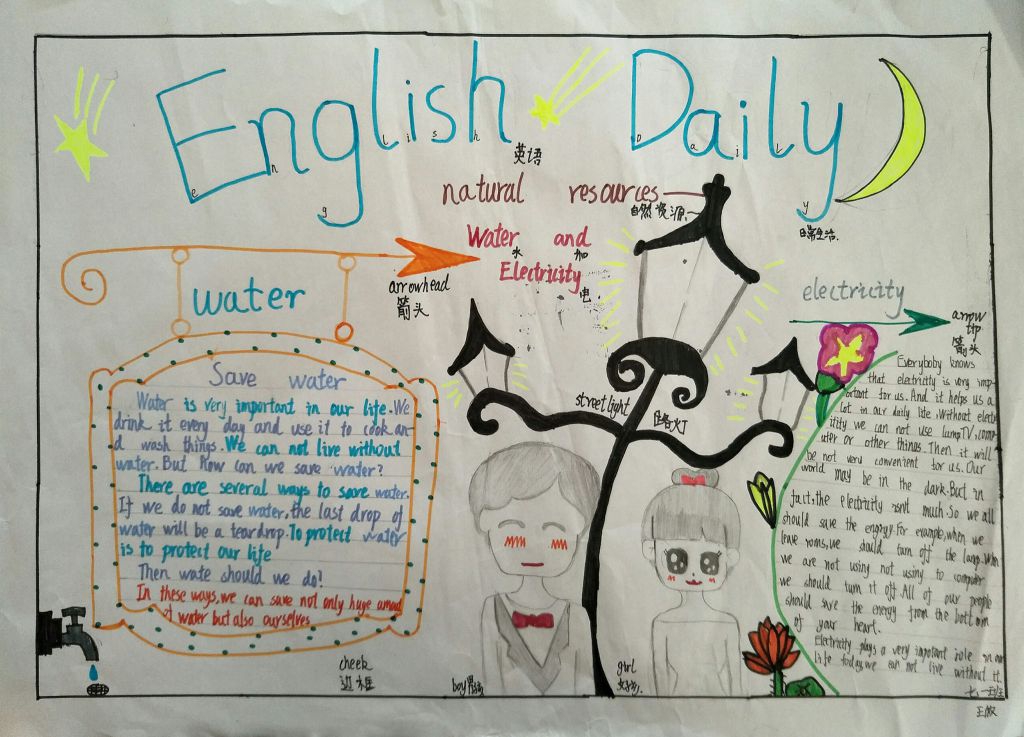 English Daily
e n g l i s h D a i l y
英语
natural resources
自然资源
日常生活.
Water and
水 和
Electricity
电.
arrowhead
箭头
water
electricity
arrow
tip
箭头
Save water
Water is very important in our life.We
drink it every day and use it to cook an-
d wash things.We can not live without
water.But how can we save water?
There are several ways to save water.
If we do not save water,the last drop of
water will be a teardrop.To protect water
is to protect our life
Then wate should we do?
In these ways.we can save not only huge amout
of water but also ourselves
streetlight
路灯
Everyboby knows
that electricity is very imp-
ortant for us.And it helps us a
lot in our daily life.Without elect
icity we can not use lamp TV,comp
uter or other things.Then it will
be not very convenient for us.Our
world may be in the dark.But in
fact,the electricity isn't much.So we all
should save the engrgy.For example,when we
leave roms,we should turn off the lamp.When
we are not using not using to computer
we should turn it off.All of our people
should save the energy from the bottom
of your heart.
Electricity plays a very impotant role in our
life today.we can not live without it.
cheek
边框
boy男孩
girl
女孩.
七、一班
王